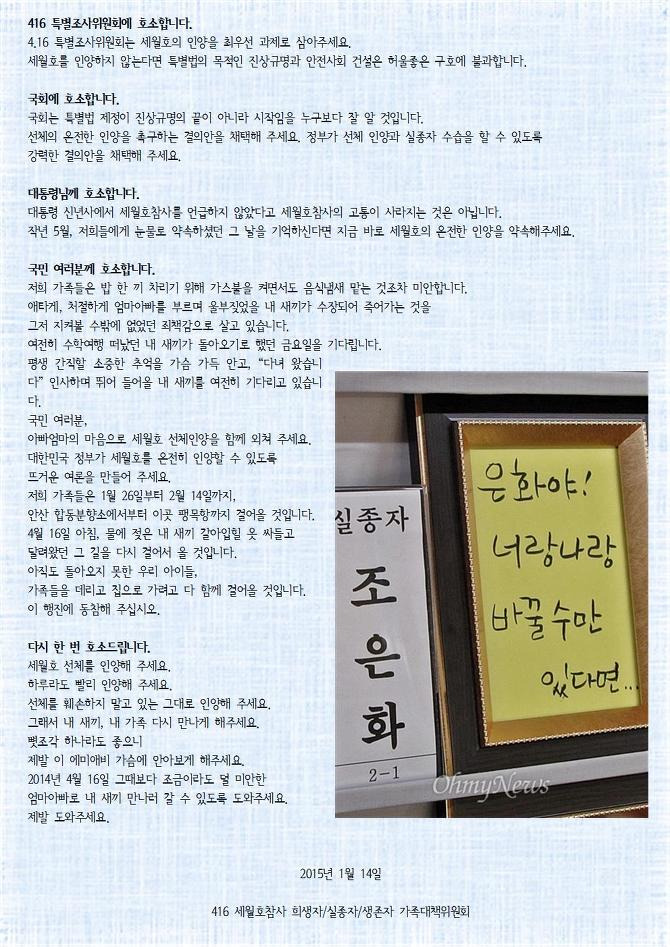 416 특별조사위원회에 호소합니다.
4.16 특별조사위원회는 세월호의 인양을 최우선 과제로 삼아주세요.
세월호를 인양하지 않는다면 특별법의 목적인 진상규명과 안전사회 건설은 허울좋은 구호에 불과합니다.
국회에 호소합니다.
국회는 특별법 제정이 진상규명의 끝이 아니라 시작임을 누구보다 잘 알 것입니다.
선체의 온전한 인양을 촉구하는 결의안을 채택해 주세요. 정부가 선체 인양과 실종자 수습을 할 수 있도록
강력한 결의안을 채택해 주세요.
대통령님께 호소합니다.
대통령 신년사에서 세월호참사를 언급하지 않았다고 세월호참사의 고통이 사라지는 것은 아닙니다.
작년 5월, 저희들에게 눈물로 약속하셨던 그 날을 기억하신다면 지금 바로 세월호의 온전한 인양을 약속해주세요.
국민 여러분께 호소합니다.
저희 가족들은 밥 한 끼 차리기 위해 가스불을 켜면서도 음식냄새 맡는 것조차 미안합니다.
애타게, 처절하게 엄마아빠를 부르며 울부짖었을 내 새끼가 수장되어 죽어가는 것을
그저 지켜볼 수밖에 없었던 죄책감으로 살고 있습니다.
여전히 수학여행 떠났던 내 새끼가 돌아오기로 했던 금요일을 기다립니다.
평생 간직할 소중한 추억을 가슴 가득 안고, “다녀 왔습니
다” 인사하며 뛰어 들어올 내 새끼를 여전히 기다리고 있습니
다.
국민 여러분,
아빠엄마의 마음으로 세월호 선체인양을 함께 외쳐 주세요.
대한민국 정부가 세월호를 온전히 인양할 수 있도록
뜨거운 여론을 만들어 주세요.
저희 가족들은 1월 26일부터 2월 14일까지,
안산 합동분향소에서부터 이곳 팽목항까지 걸어올 것입니다.
4월 16일 아침, 물에 젖은 내 새끼 갈아입힐 옷 싸들고
달려왔던 그 길을 다시 걸어서 올 것입니다.
아직도 돌아오지 못한 우리 아이들,
가족들을 데리고 집으로 가려고 다 함께 걸어올 것입니다.
이 행진에 동참해 주십시오.
다시 한 번 호소드립니다.
세월호 선체를 인양해 주세요.
하루라도 빨리 인양해 주세요.
선체를 훼손하지 말고 있는 그대로 인양해 주세요.
그래서 내 새끼, 내 가족 다시 만나게 해주세요.
뼛조각 하나라도 좋으니
제발 이 에미애비 가슴에 안아보게 해주세요.
2014년 4월 16일 그때보다 조금이라도 덜 미안한
엄마아빠로 내 새끼 만나러 갈 수 있도록 도와주세요.
제발 도와주세요.
실종자
조
은
화
2-1
은화야!
너랑나랑
바꿀수만
있다면...
OhmyNews
2015년 1월 14일
416 세월호참사 희생자/실종자/생존자 가족대책위원회